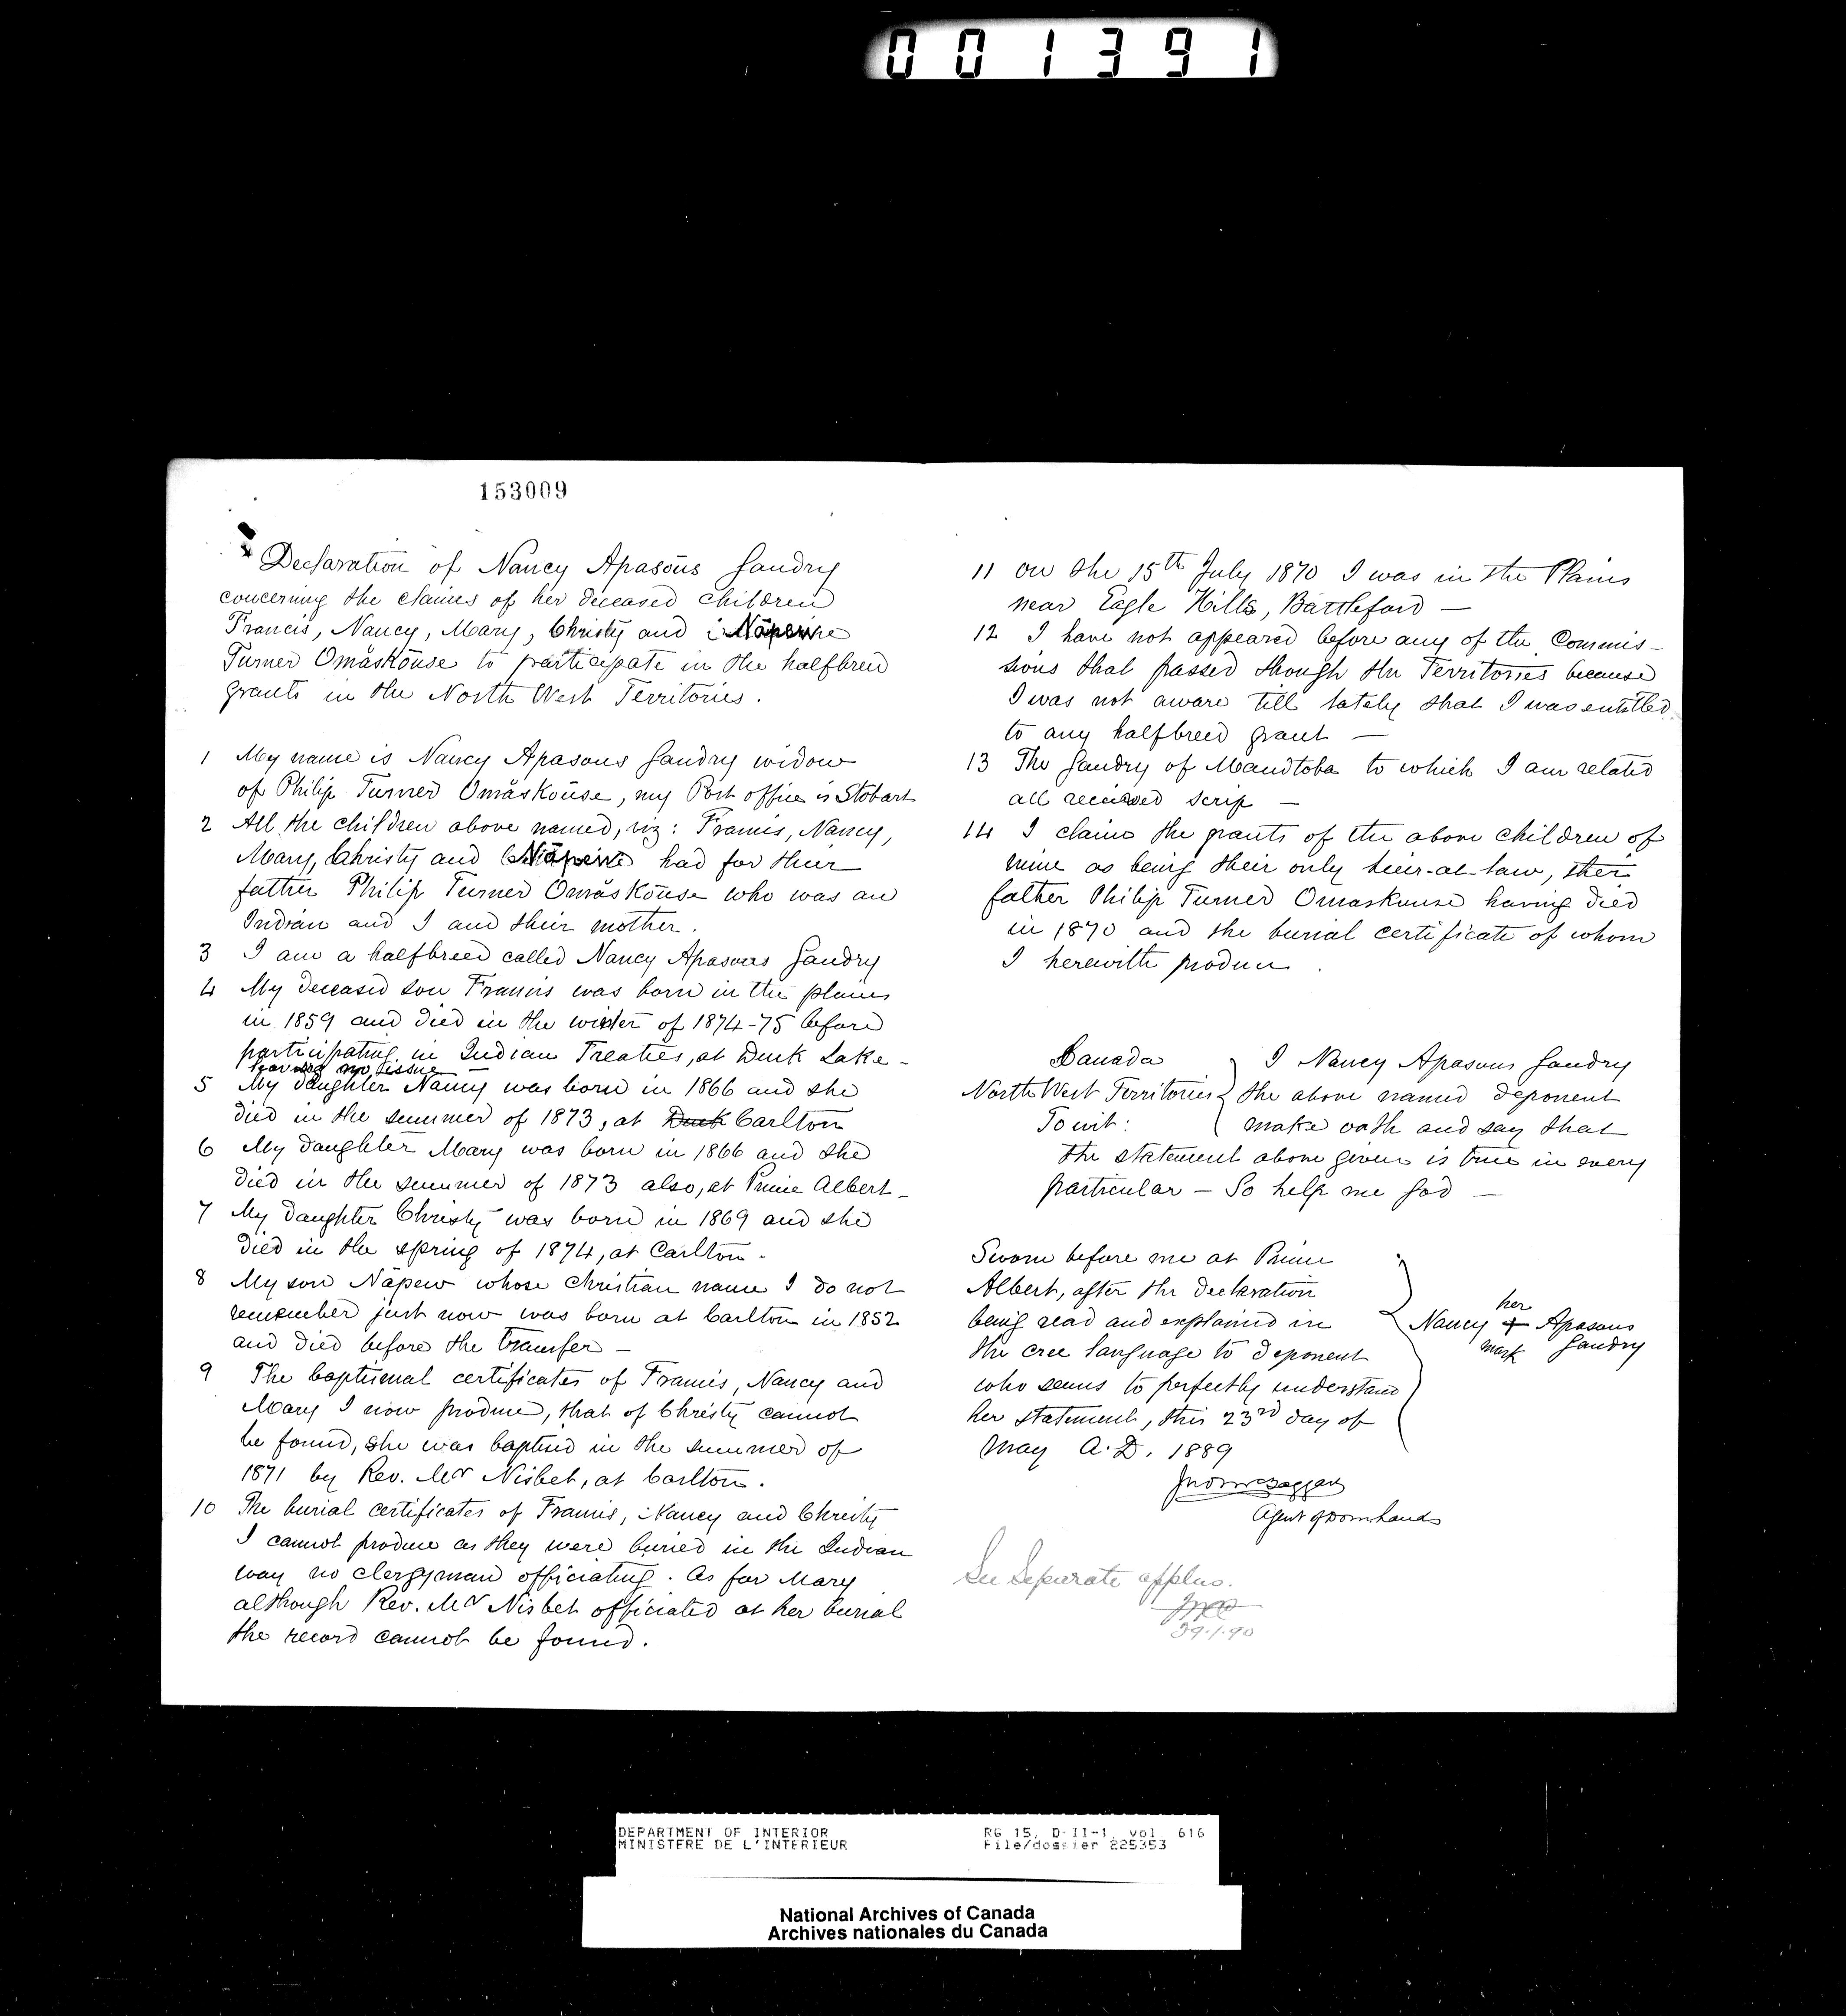 001391
153009
Declaration of Nancy Apasoūs Gaudry
concerning the claims of her deceased children
Francis, Nancy, Mary, Christy and Nāpew
Turner Omāskōuse to participate in the halfbreed
grants in the North West Territories.
1 My name is Nancy Apasous Gaudry widow
of Philip Turner Omāskōuse, my Post office is Stobart
2 All the children above named, viz: Francis, Nancy,
Mary, Christy and Nāpew had for their
father Philip Turner Omāskōuse who was an
Indian and I and their mother.
3 I am a halfbreed called Nancy Apasous Gaudry
4 My deceased son Francis was born in the plains
in 1859 and died in the winter of 1874-75 before
participating in Indian Treaties, at Duck Lake -
leaving no issue
5 My daughter Nancy was born in 1866 and she
died in the summer of 1873, at Duck Carlton
6 My daughter Mary was born in 1866 and she
died in the summer of 1873 also, at Prince Albert -
7 My daughter Christy was born in 1869 and she
died in the spring of 1874, at Carlton -
8 My son Nāpew whose Christian name I do not
remember just now was born at Carlton in 1852
and died before the transfer -
9 The baptismal certificates of Francis, Nancy and
Mary I now produce, that of Christy cannot
be found, she was baptised in the summer of
1871 by Rev. Mr Nisbet, at Carlton.
10 The burial certificates of Francis, Nancy and Christy
I cannot produce as they were buried in the Indian
way no clergyman officiating. As for Mary
although Rev. Mr Nisbet officiated at her burial
the record cannot be found.
11 On the 15th July 1870 I was in the Plains
near Eagle Hills, Battleford -
12 I have not appeared before any of the Commis-
sions that passed though the Territories because
I was not aware till lately that I was entitled
to any halfbreed grant -
13 The Gaudry of Manitoba to which I am related
all received scrip -
14 I claim the grants of the above children of
mine as being their only heir-at-law, their
father Philip Turner Omaskouse having died
in 1870 and the burial certificate of whom
I herewith produce.
Canada
North West Territories
To wit:
I Nancy Apasous Gaudry
the above named deponent
make oath and say that
the statement above given is true in every
particular - So help me God -
Sworn before me at Prince
Albert, after the declaration
being read and explained in
the cree language to deponent
who seems to perfectly understand
her statement, this 23rd day of
May A.D. 1889
her
Nancy + Apasous
mark Gaudry
Agent of Dom Lands
See Separate applns.
29.1.90
DEPARTMENT OF INTERIOR
MINISTERE DE L'INTERIEUR
RG 15, D-II-1, vol. 616
File/dossier 225353
National Archives of Canada
Archives nationales du Canada